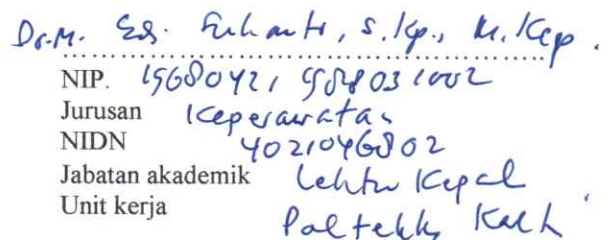 Dr. M. Edi Suhanto, S.Kp., M.Kep.
NIP. 19680421 198803 1002
Jurusan Keperawatan
NIDN 4021046802
Jabatan akademik Lektor Kepal
Unit kerja
Poltekkes